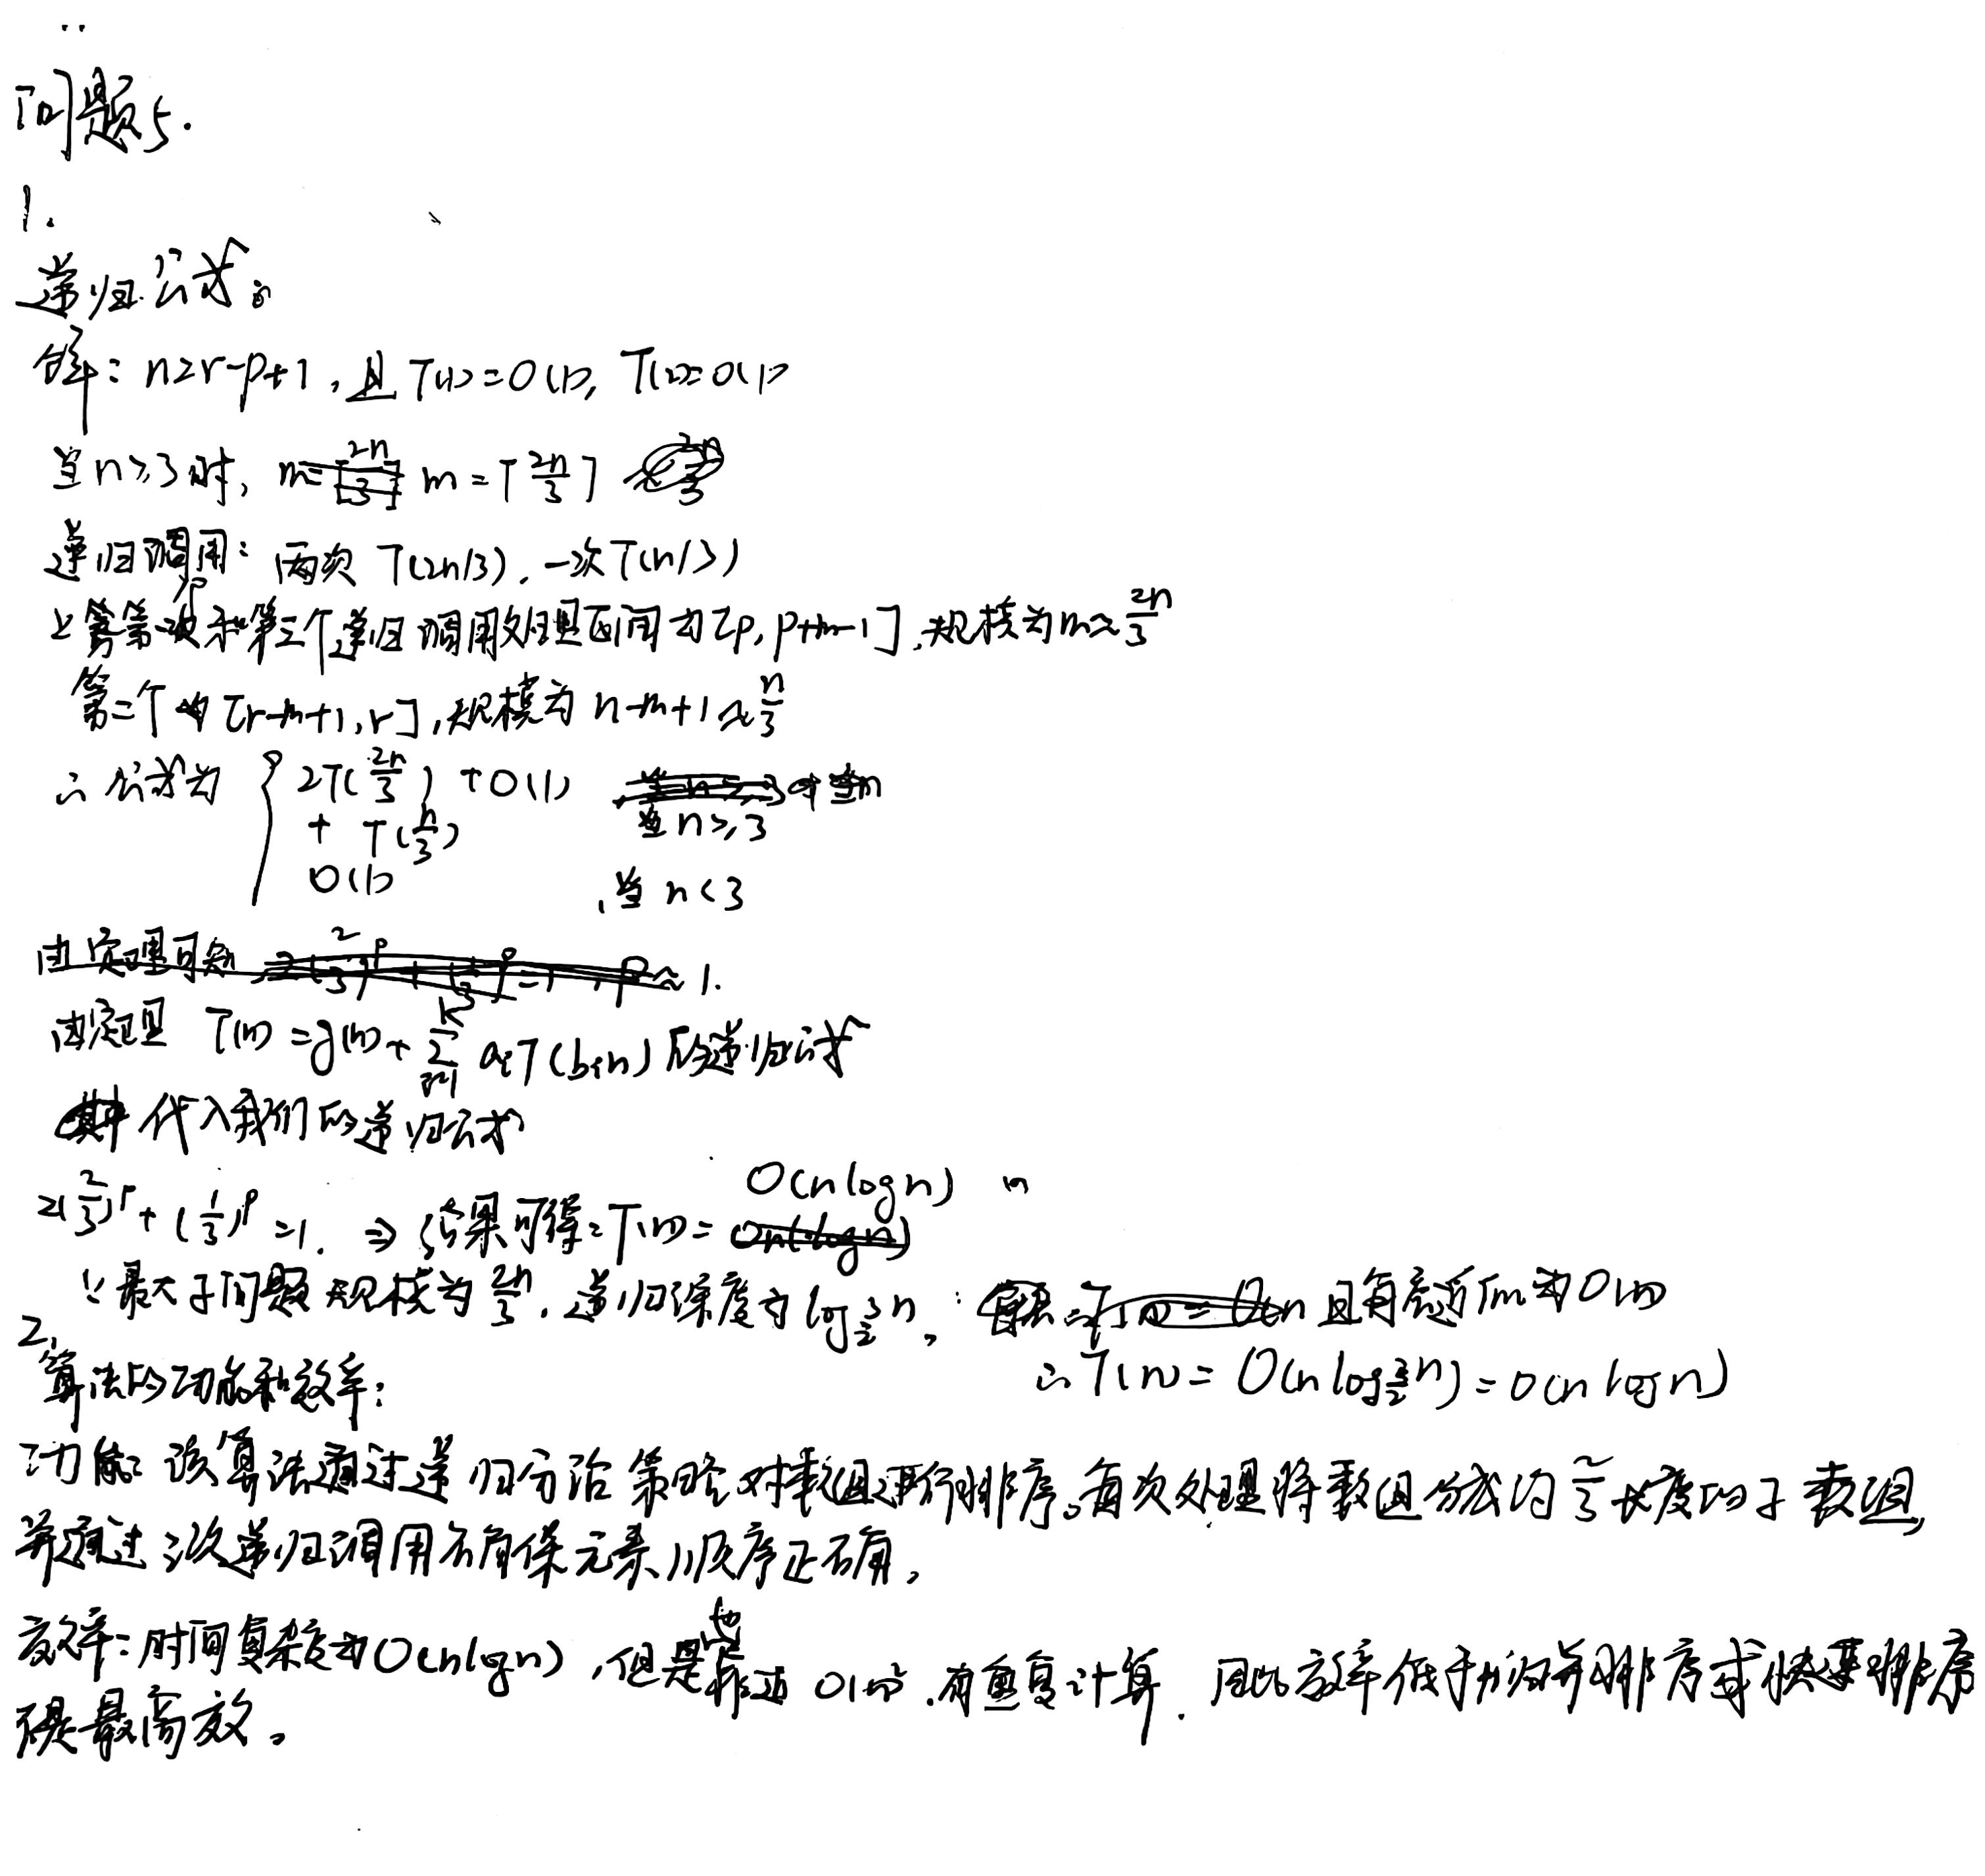 问题5.
1.
递归公式:
解: n=r-p+1, 且 T(1)=O(1), T(2)=O(1)
当n≥3时, m=⌈2n/3⌉
递归调用: 两次 T(2n/3), 一次T(n/3)
第一次和第三个递归调用处理区间为[p, p+m-1], 规模为m≈2n/3
第二个为[r-m+1, r], 规模为 n-m+1≈n/3
∴ 公式为 { 2T(2n/3) + O(1)
+ T(n/3) 当n≥3
O(1) , 当 n<3
由定理可知 1.
由定理 T(n) = g(n)+ ∑ᵏᵢ₌₁ aᵢT(bᵢn) 的递归公式
代入我们的递归公式
2(2/3)ᵖ + (1/3)ᵖ =1. ⇒ 结果可得: T(n)= O(nlogn)
∵ 最大子问题规模为 2n/3, 递归深度为 log₃/₂n, 且每层 为O(n)
∴ T(n) = O(nlog₃/₂n) = O(nlogn)
2,
算法的功能和效率:
功能: 该算法通过递归分治策略对数组进行排序。每次处理将数组分成约 2/3 长度的子数组,
并通过三次递归调用确保元素顺序正确。
效率: 时间复杂度为O(nlogn), 但是他 O(n², 有重复计算. 因此效率低于归并排序或快速排序
不是最高效。